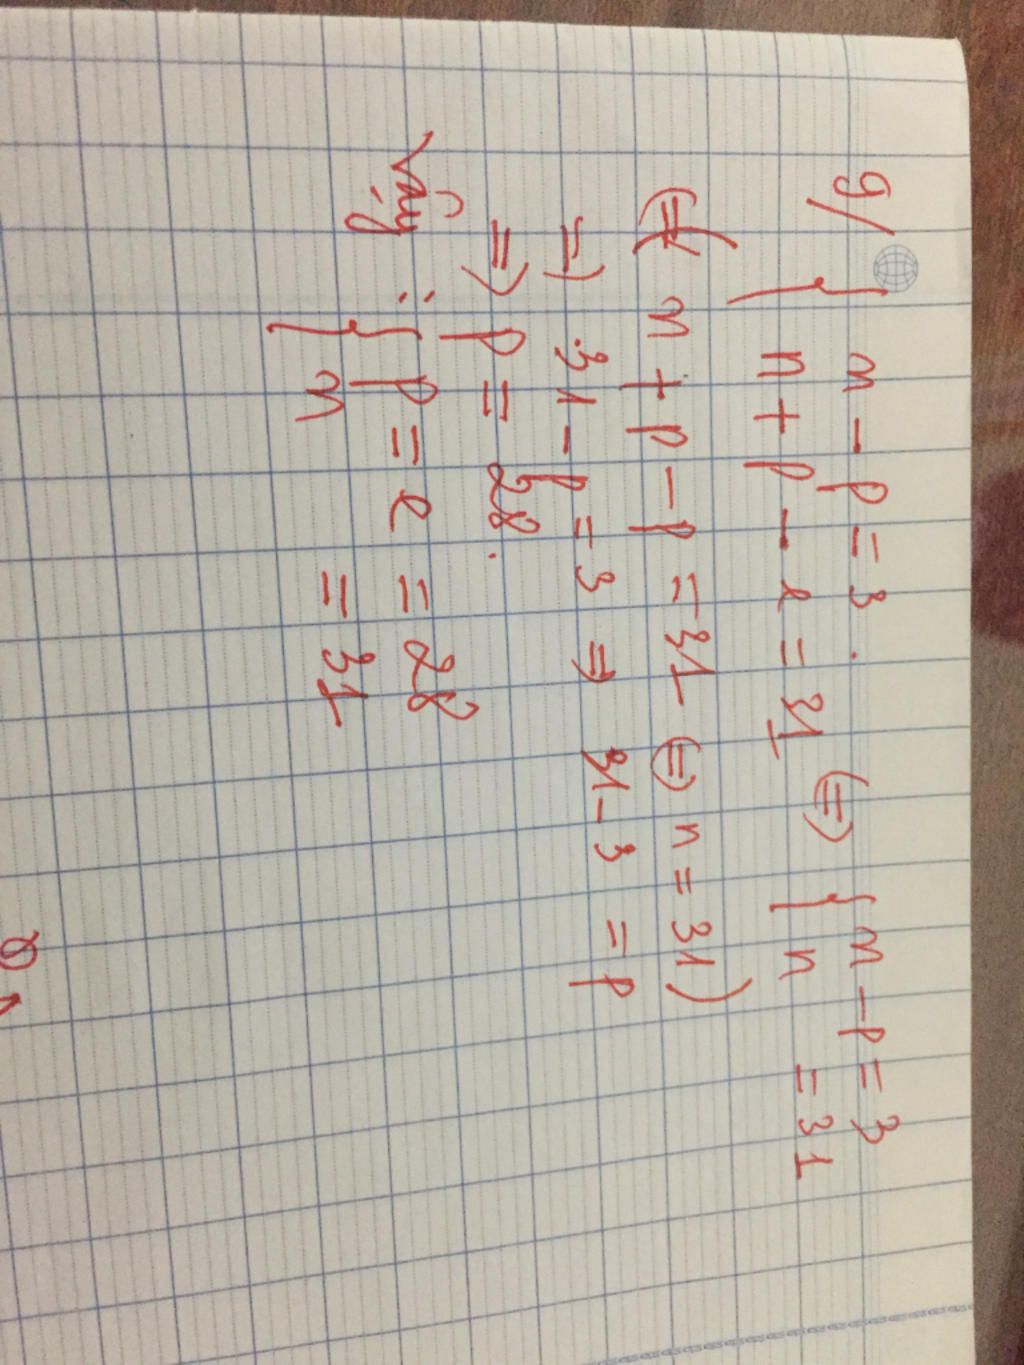 9/ { n - p = 3. ⇔ { n - p = 3
n + p - e = 31 n = 31
(⇔ n + p - p = 31 ⇔ n = 31)
⇒ 31 - p = 3 ⇒ 31 - 3 = p
⇒ p = 28.
Vậy : { p = e = 28
n = 31